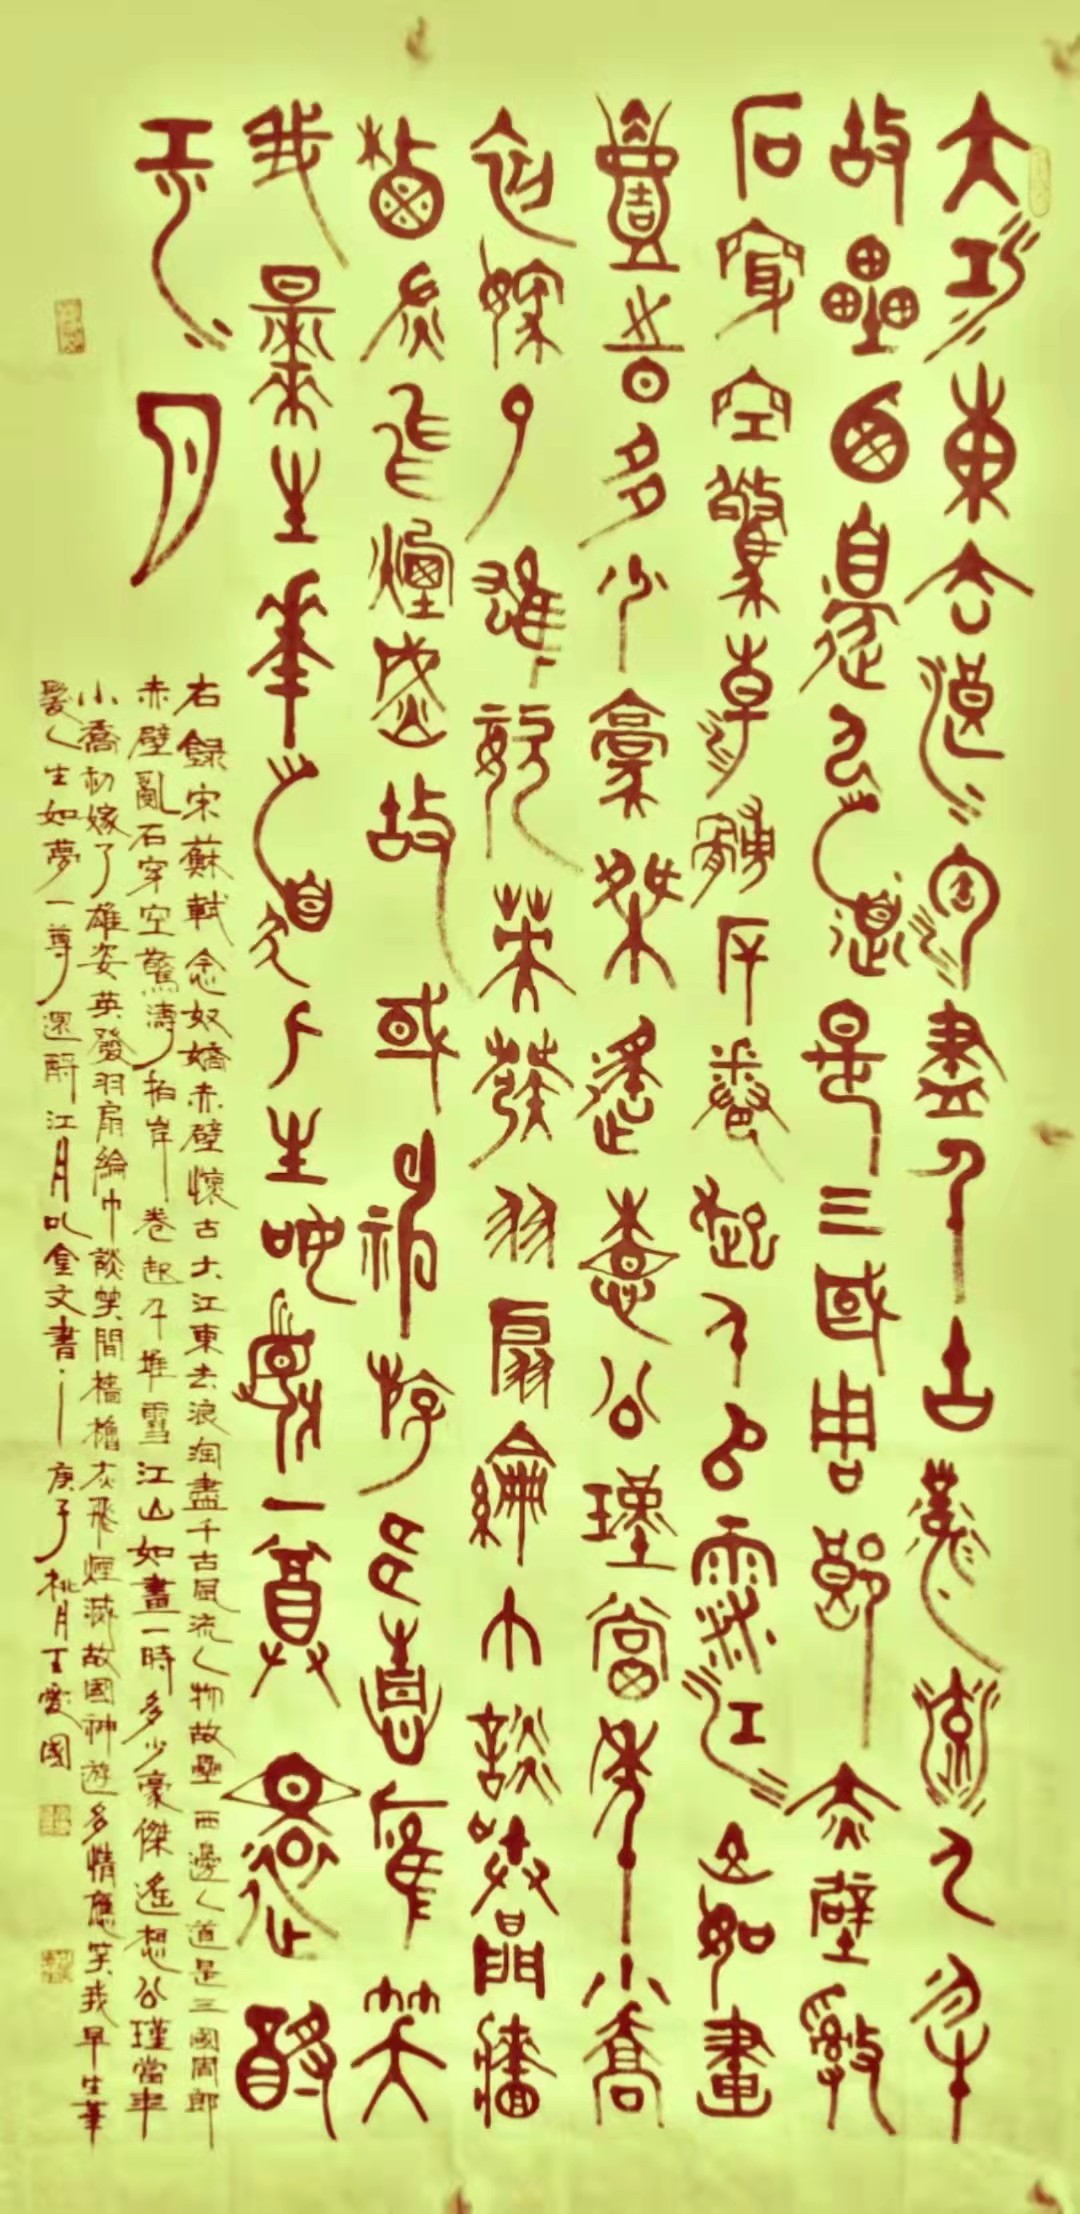 大江東去浪淘盡千古風流人物
故壘西邊人道是三國周郎赤壁亂
石穿空驚濤拍岸卷起千堆雪江山如畫
壹時多少豪傑遙想公瑾當年小喬
初嫁了雄姿英發羽扇綸巾談笑間檣
櫓灰飛煙滅故國神游多情應笑
我早生華髮人生如夢一尊還酹
江月
右錄宋蘇軾念奴嬌赤壁懷古大江東去浪淘盡千古風流人物故壘西邊人道是三國周郎
赤壁亂石穿空驚濤拍岸卷起千堆雪江山如畫一時多少豪傑遙想公瑾當年
小喬初嫁了雄姿英發羽扇綸巾談笑間檣櫓灰飛煙滅故國神遊多情應笑我早生華
髮人生如夢一尊還酹江月以金文書庚子桃月王愛國